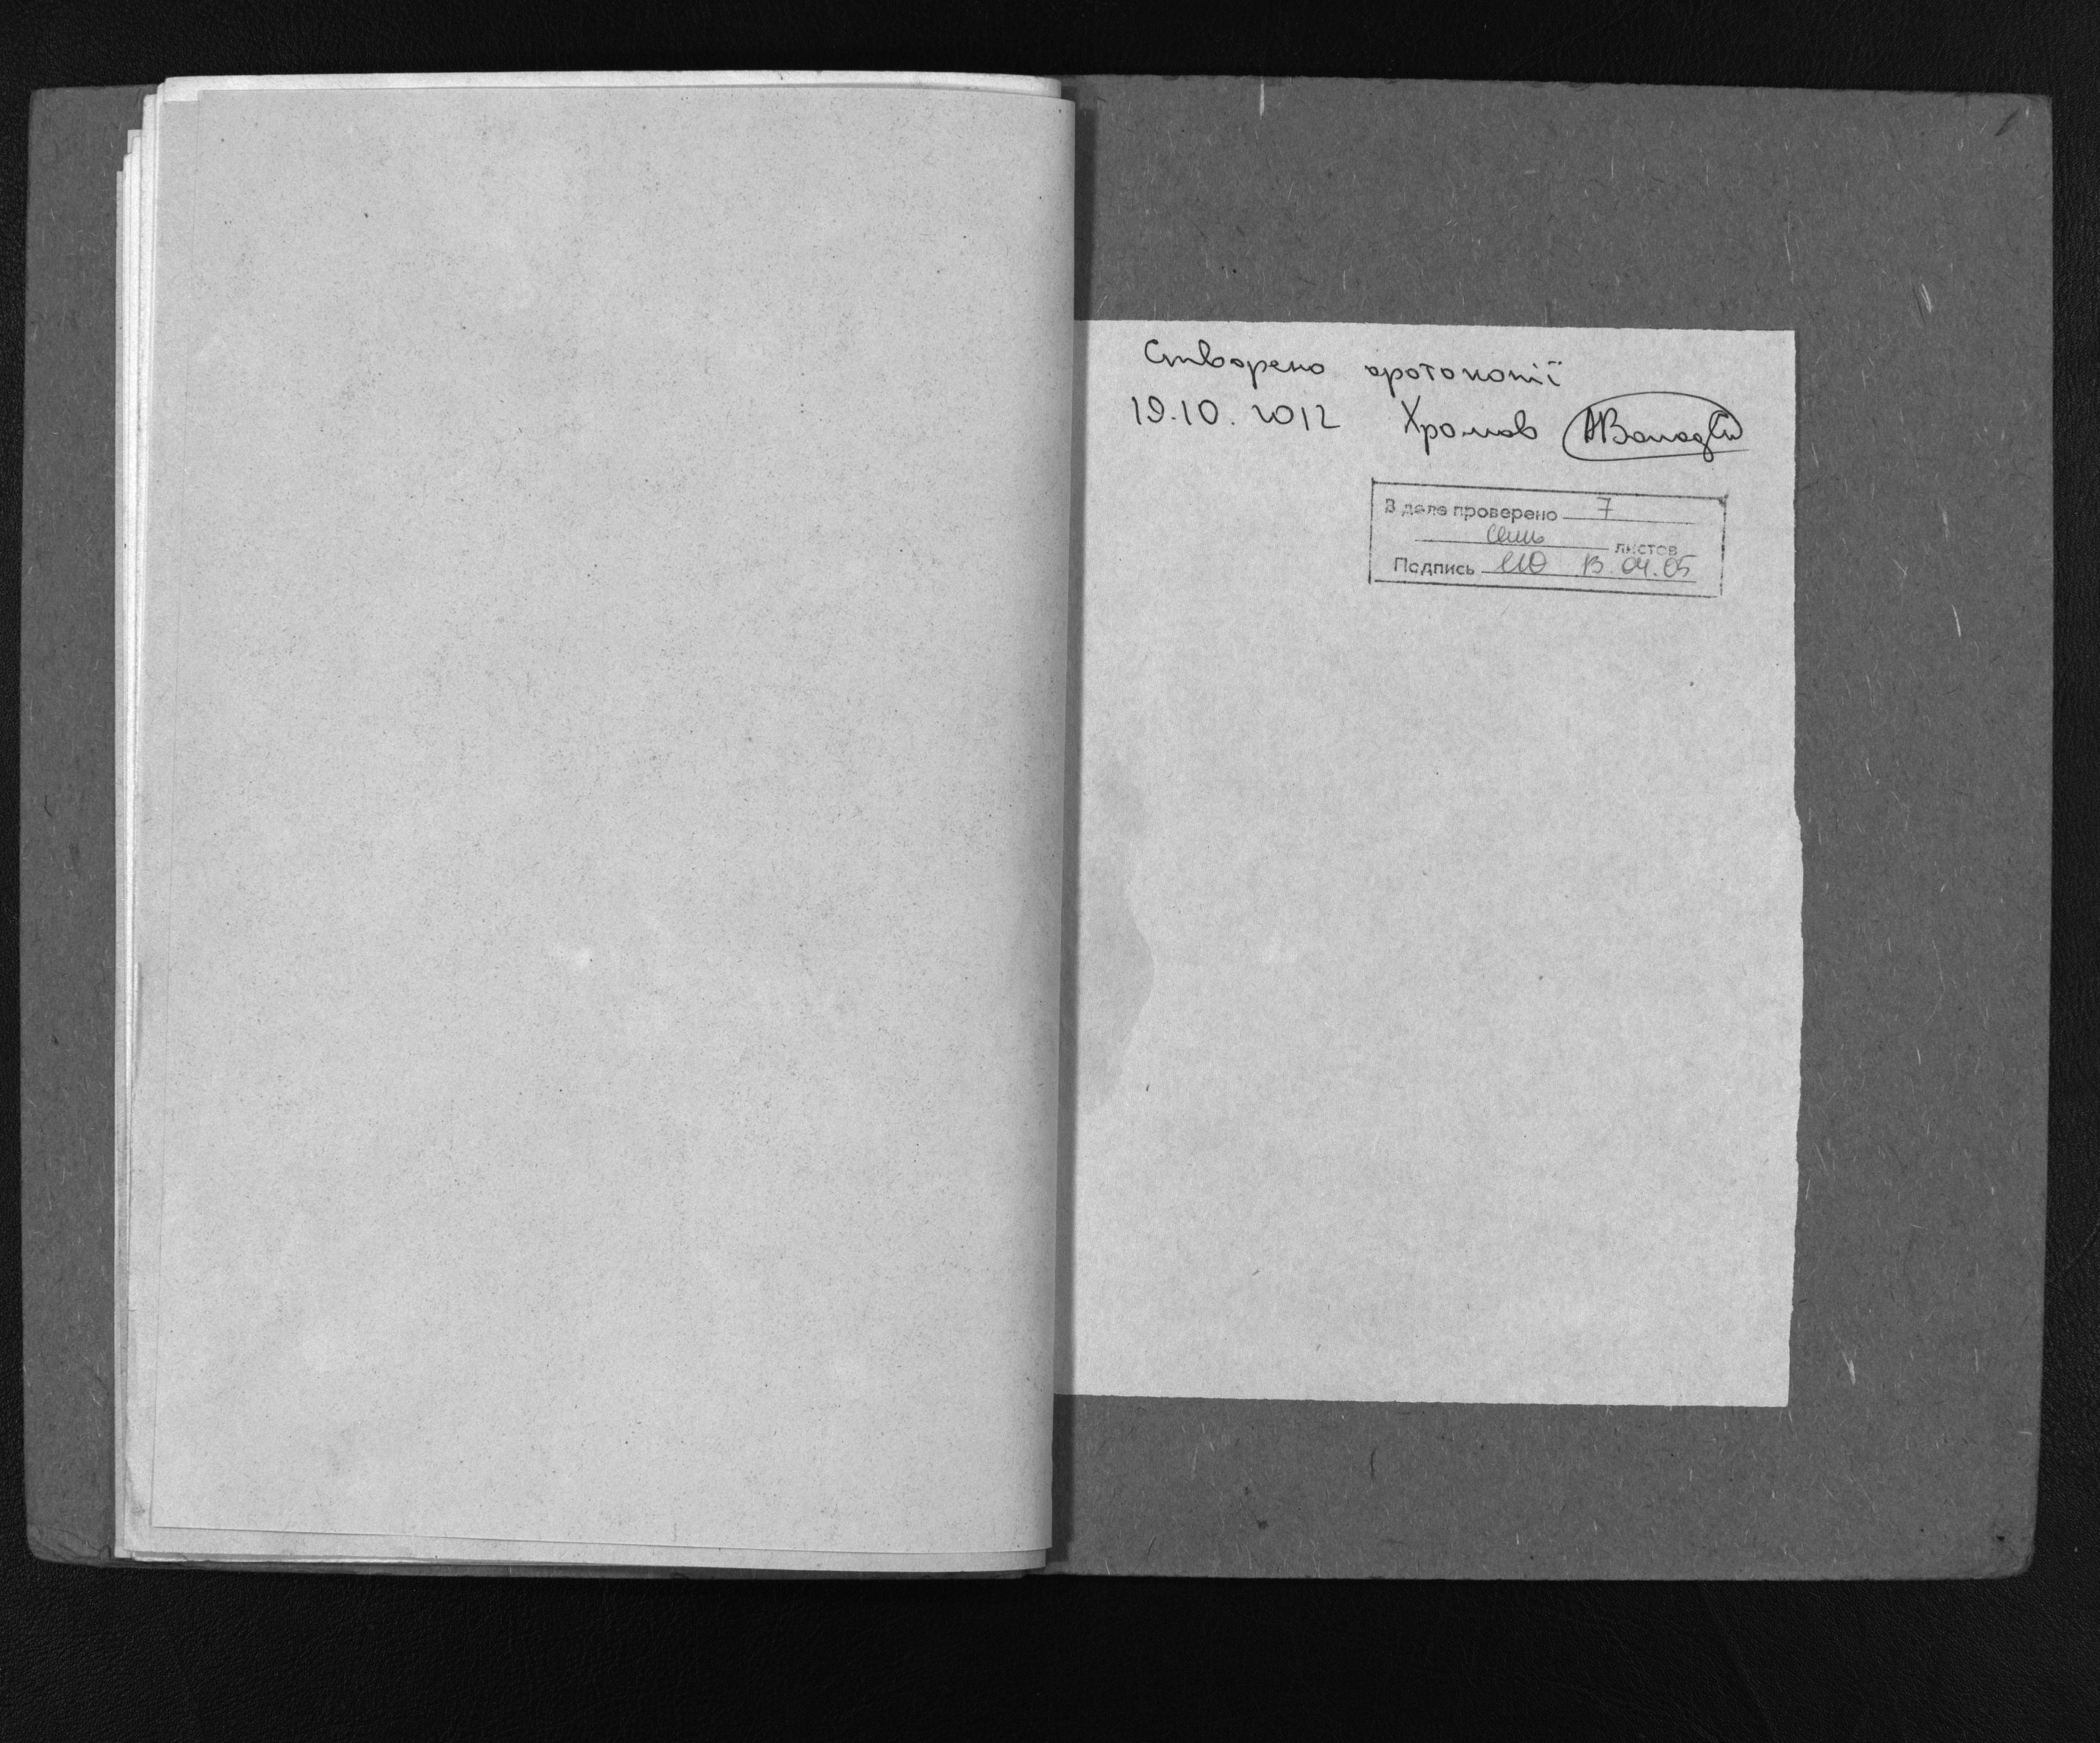 Створено фотокопії
19.10.2012 Хромов
В деле проверено 7
семь листов
Подпись 13.04.05